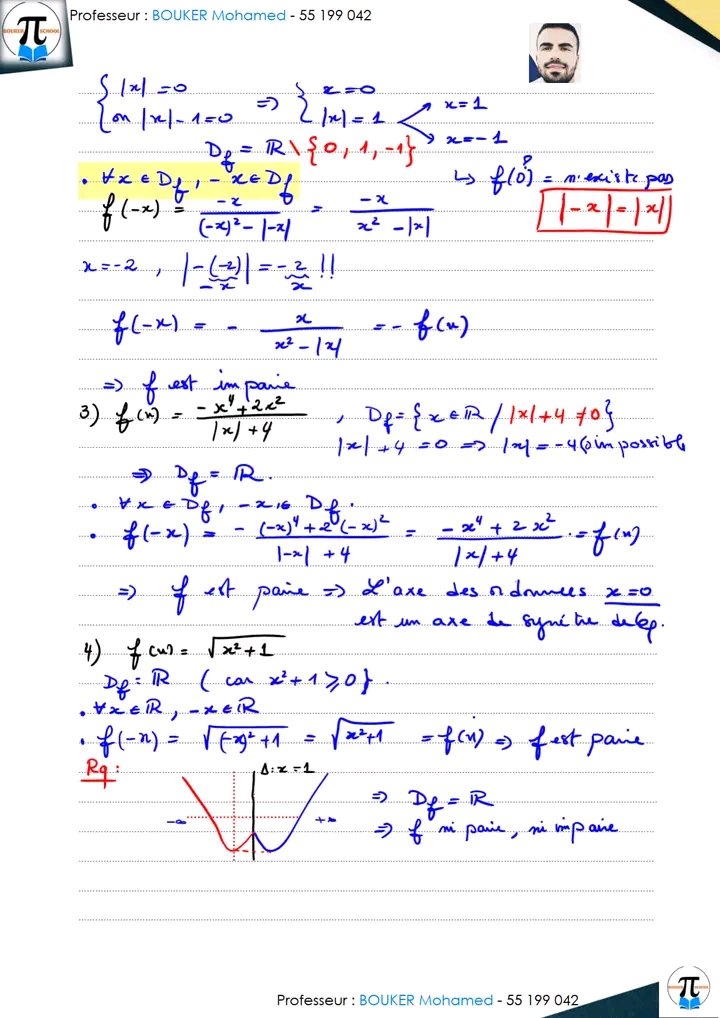 Professeur : BOUKER Mohamed - 55 199 042
π
BOUKER SCHOOL
{ |x| = 0 ou |x| - 1 = 0 => { x = 0 |x| = 1 → x = 1 → x = -1
Df = ℝ \ {0, 1, -1}
. ∀x ∈ Df, -x ∈ Df ↳ f(0) = n'existe pas
f(-x) = -x / ((-x)² - |-x|) = -x / (x² - |x|) |-x| = |x|
x = -2 , |-(-2)| = -2 !!
-x x
f(-x) = - x / (x² - |x|) = - f(x)
=> f est impaire
3) f(x) = (-x⁴ + 2x²) / (|x| + 4) , Df = { x ∈ ℝ / |x| + 4 ≠ 0 }
|x| + 4 = 0 => |x| = -4 (impossible
=> Df = ℝ.
. ∀x ∈ Df, -x ∈ Df.
. f(-x) = (-(-x)⁴ + 2(-x)²) / (|-x| + 4) = (-x⁴ + 2x²) / (|x| + 4) = f(x)
=> f est paire => L'axe des ordonnées x = 0
est un axe de symétrie de Cf.
4) f(x) = √(x² + 1)
Df = ℝ ( car x² + 1 ⩾ 0 ) .
. ∀x ∈ ℝ, -x ∈ ℝ
. f(-x) = √((-x)² + 1) = √(x² + 1) = f(x) => f est paire
Rq :
Δ: x = 1
-∞ +∞
=> Df = ℝ
=> f ni paire, ni impaire
Professeur : BOUKER Mohamed - 55 199 042
π